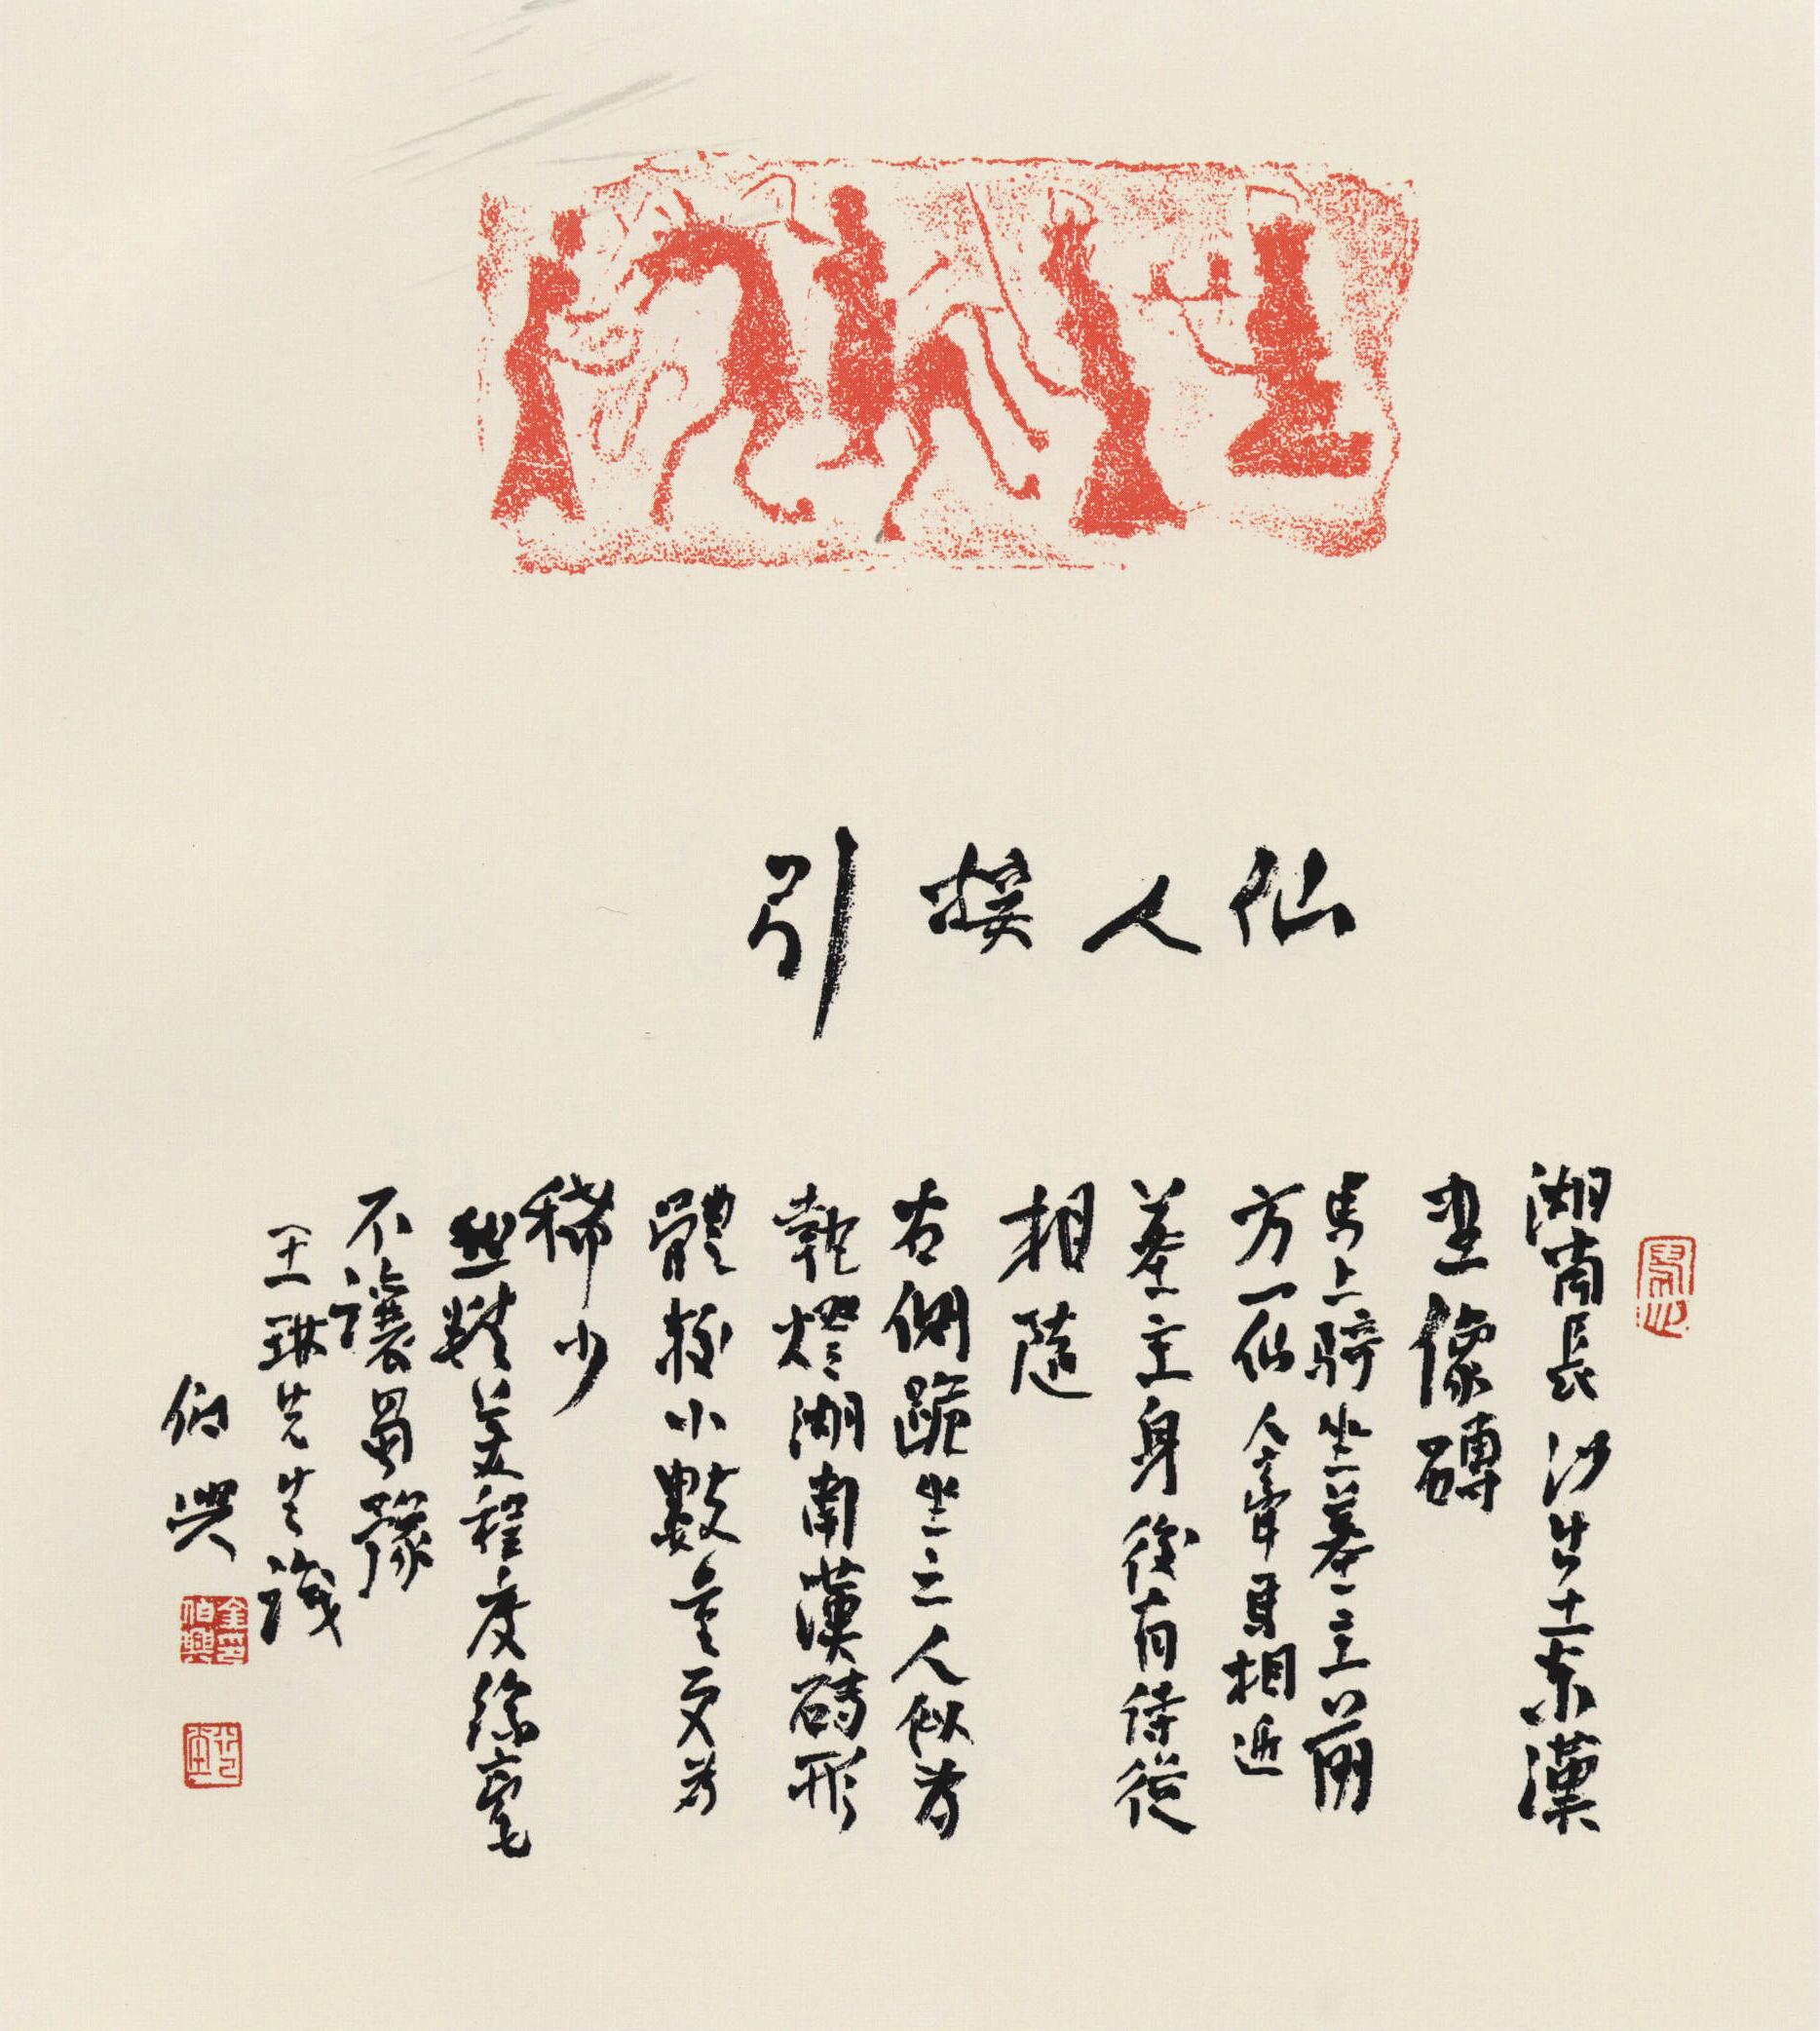 仙人接引
湖南長沙出土東漢
畫像磚
馬上騎坐墓主前
方一仙人牽馬相迎
墓主身後有侍從
相隨
右側跪坐之人似為
執燈湖南漢磚形
體較小數量更為
稀少
然精美程度絲毫
不讓蜀豫
王琳先生識
伯興
伯興